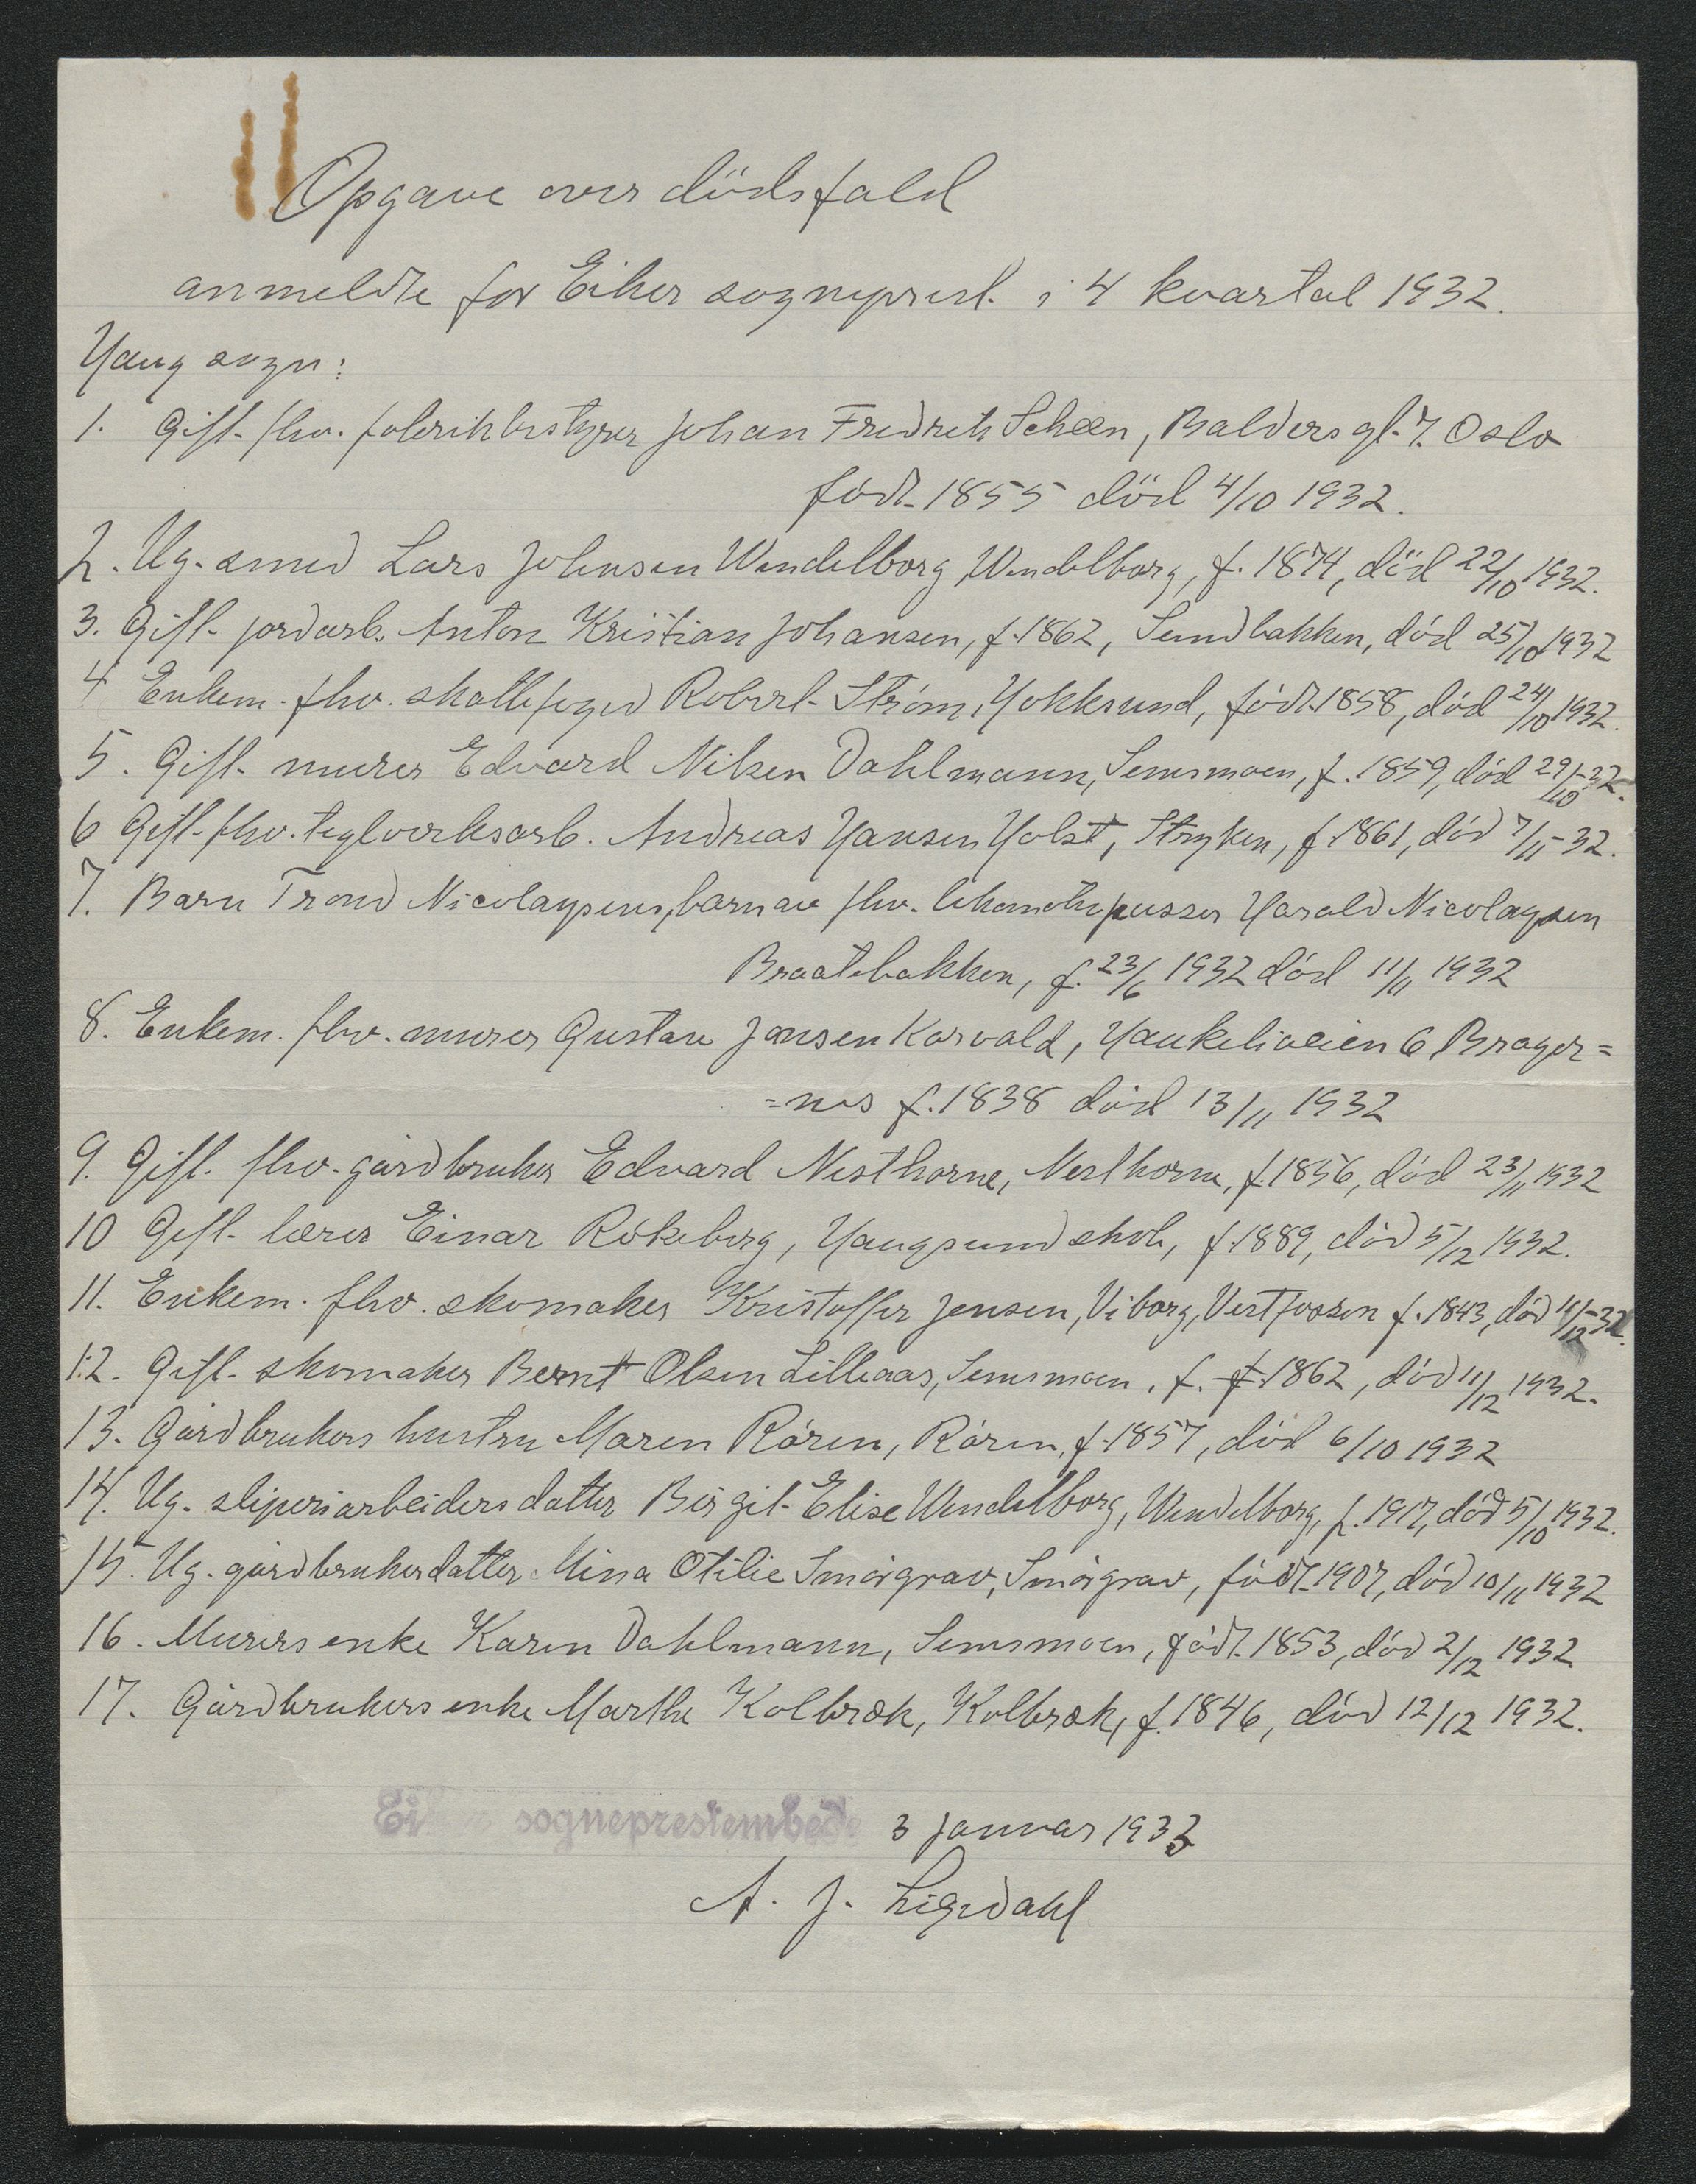 Opgave over dödsfald
anmeldte for Eiker sogneprest. i 4 kvartal 1932.
Haug sogn:
1. Gift. fhv. fabrikbestyrer Johan Fredrik Scheen, Baldersgt. 7. Oslo
født. 1855 död 4/10 1932.
2. Ug. smed Lars Johnsen Wendelborg, Wendelborg, f. 1874, död 22/10 1932.
3. Gift. jordarb. Anton Kristian Johansen, f. 1862, Sundbakken, död 25/10 1932
4 Enkem. fhv. skattefoged Robert Strøm, Hokksund, født. 1858, död 24/10 1932.
5. Gift. murer Edvard Nilsen Dahlmann, Semsmoen, f. 1859, död 29/10-32.
6 Gift. fhv. teglverksarb. Andreas Hansen Holst, Stryken, f. 1861, död 7/11-32.
7. Barn Trond Nicolaysen, barn av fhv. lokomotivpusser Harald Nicolaysen
Braatebakken, f. 23/6 1932 död 11/11 1932
8. Enkem. fhv. murer Gustav Jansen Korvald, Haukeliveien 6 Brager=
=nes f. 1838 död 13/11 1932
9. Gift. fhv. gårdbruker Edvard Nesthorne, Nesthorne, f. 1856, död 23/11 1932
10 Gift. lærer Einar Rökeberg, Haugsund skole, f. 1889, död 5/12 1932.
11. Enkem. fhv. skomaker Kristoffer Jensen, Viborg, Vestfossen f. 1843, död 11/12-32.
12. Gift. skomaker Bernt Olsen Lilleaas, Semsmoen, f. f. 1862, död 11/12 1932.
13. Gårdbrukers hustru Maren Rören, Rören, f. 1857, död 6/10 1932
14. Ug. sliperiarbeiders datter Birgit Elise Wendelborg, Wendelborg, f. 1917, död 5/10 1932.
15. Ug. gårdbrukerdatter Mina Otilie Smörgrav, Smörgrav, født. 1907, död 10/11 1932
16. Murers enke Karen Dahlmann, Semsmoen, født. 1853, död 2/12 1932
17. Gårdbrukers enke Marthe Kolbræk, Kolbræk, f. 1846, död 12/12 1932.
sogneprestembede 3 januar 1933
A. J. Ligrdahl